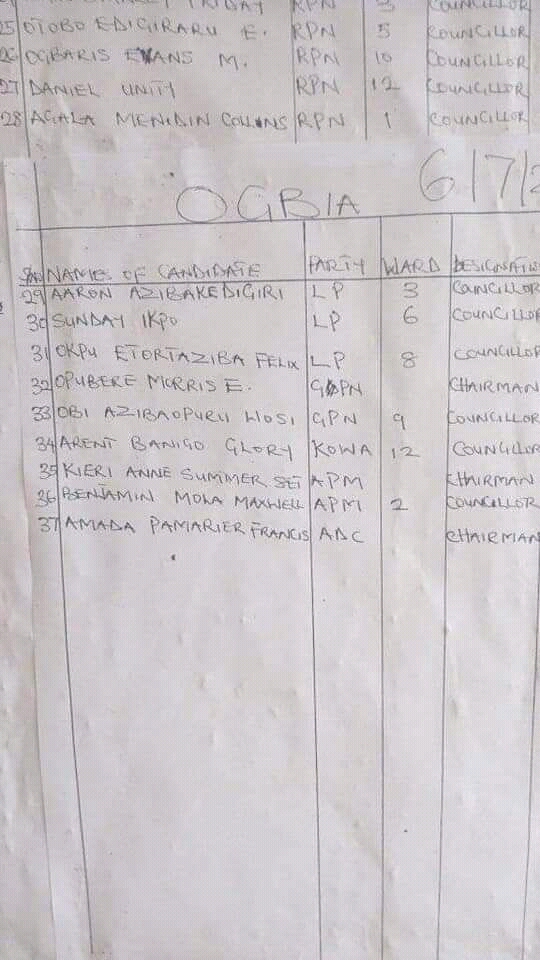 FRIDAY RPN 3 COUNCILLOR
25 OTOBO EDIGIRARU E. RPN 5 COUNCILLOR
26 OGBARIS EVANS M. RPN 10 COUNCILLOR
27 DANIEL UNITY RPN 12 COUNCILLOR
28 AGALA MENIDIN COLLINS RPN 1 COUNCILLOR
OGBIA 6/7/2
S/NO NAMES OF CANDIDATE PARTY WARD DESIGNATIO
29 AARON AZIBAKEDIGIRI LP 3 COUNCILLOR
30 SUNDAY IKPO LP 6 COUNCILLOR
31 OKPU ETORTAZIBA FELIX LP 8 COUNCILLOR
32 OPUBERE MORRIS E. GPN CHAIRMAN
33 OBI AZIBAOPURU GPN 9 COUNCILLOR
34 ARENT BANIGO GLORY KOWA 12 COUNCILLOR
35 KIERI ANNE SUMMER SEI APM CHAIRMAN
36 BENJAMIN MOKA MAXWELL APM 2 COUNCILLOR
37 AMADA PAMARIER FRANCIS ADC CHAIRMAN